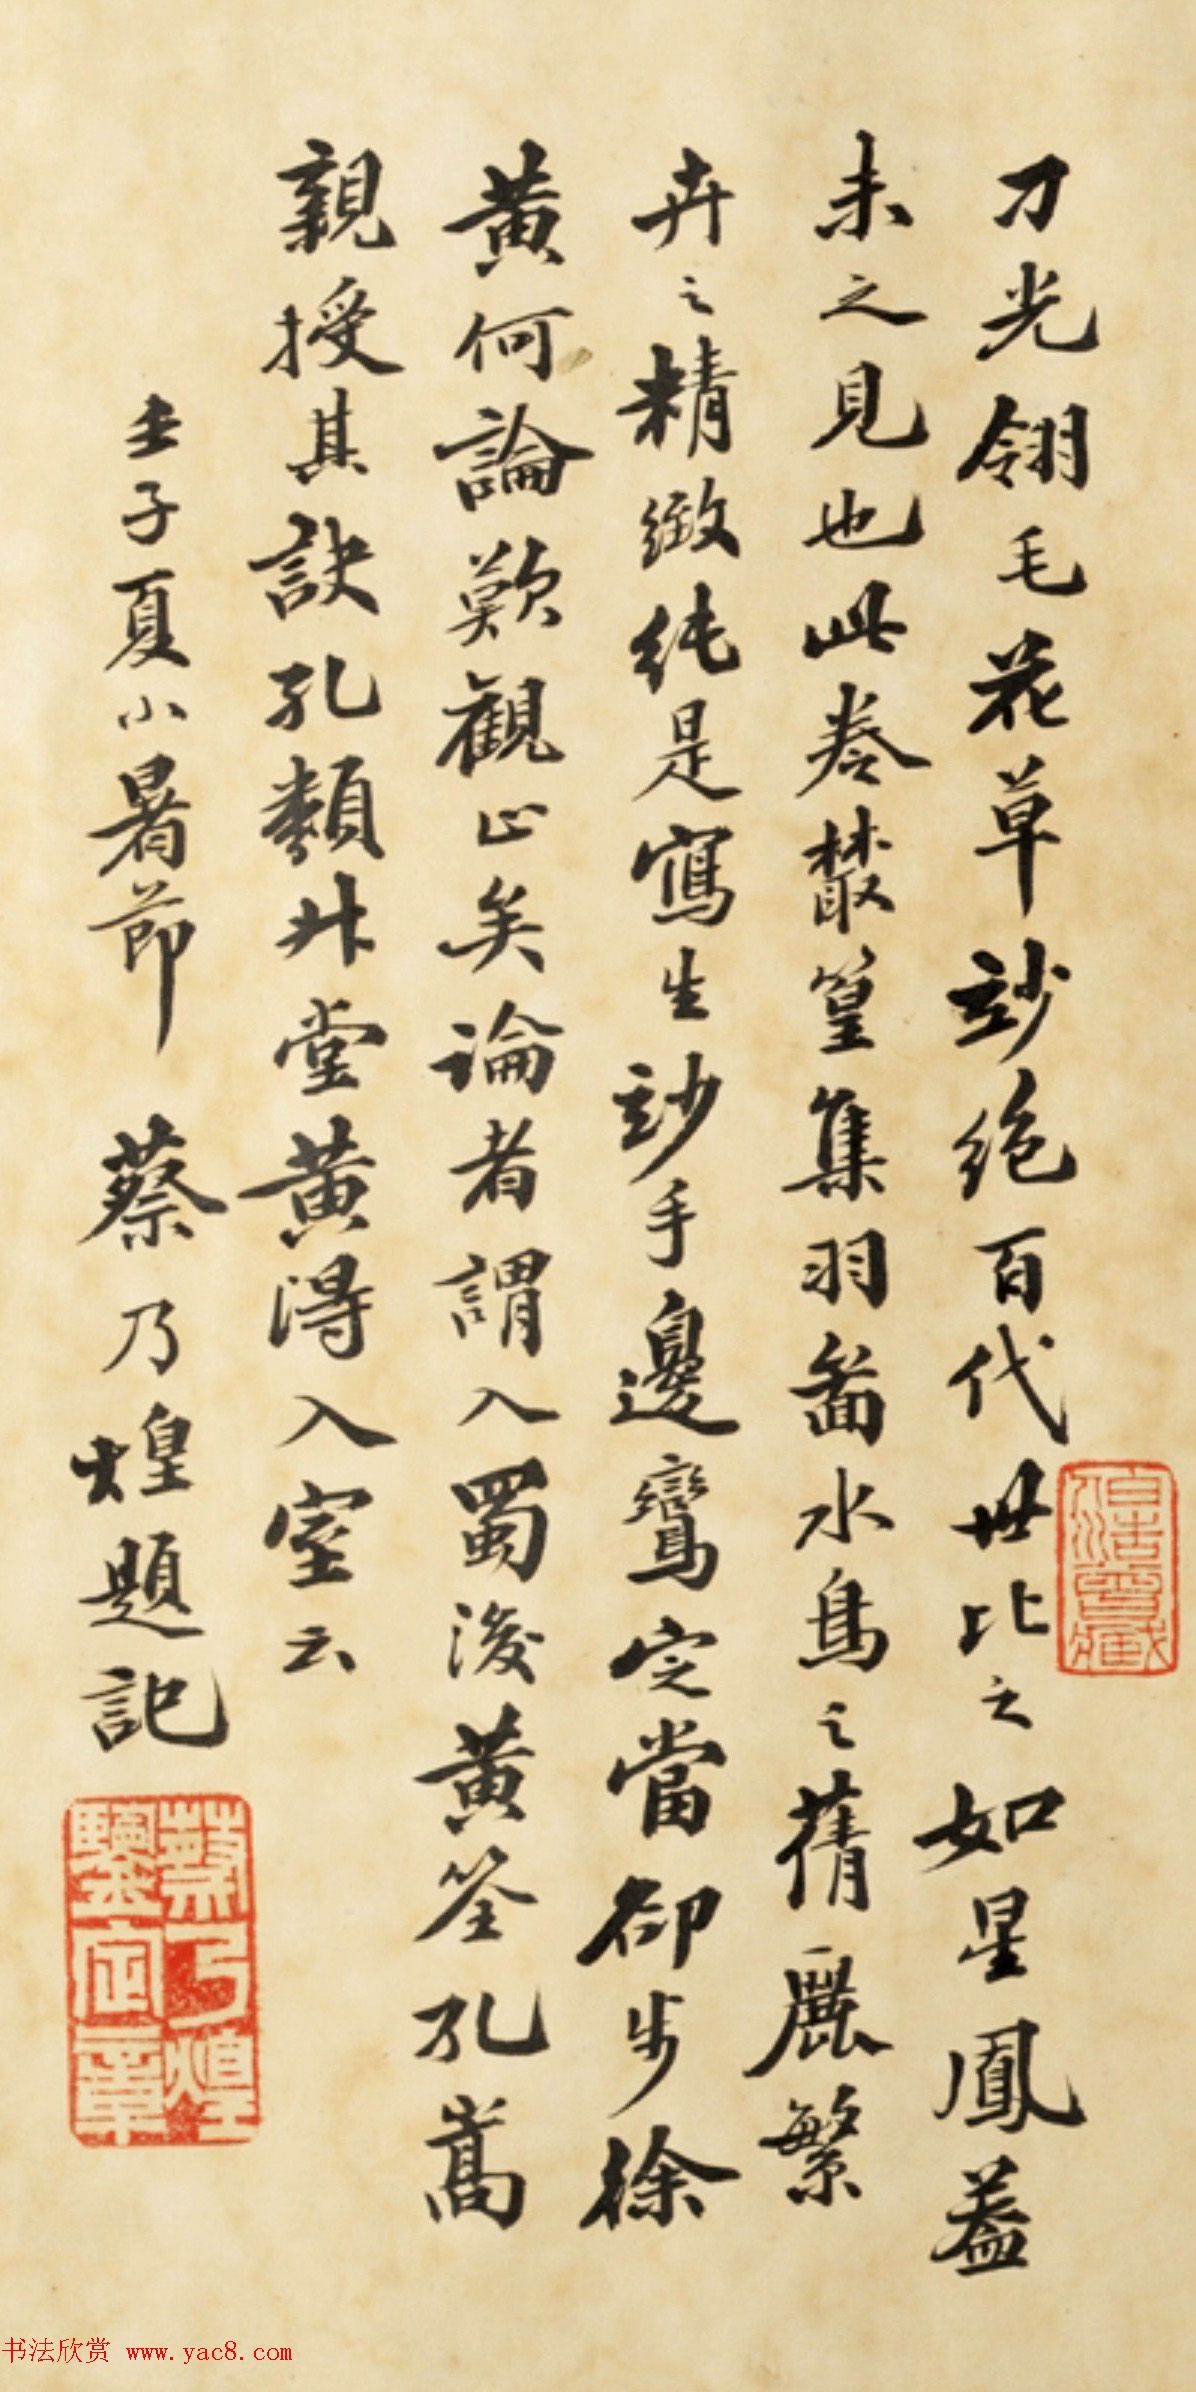 刀光翎毛花草妙絕百代世比之如星鳳蓋
未之見也此卷叢篁集羽畣水鳥之蒨麗繁
卉之精緻純是寫生妙手邊鸞定當卻步徐
黃何論歎觀止矣論者謂入蜀後黃筌孔嵩
親授其訣孔類升堂黃得入室云
壬子夏小暑節 蔡乃煌題記
蔡乃煌
鑒定章
伯浩曾藏
书法欣赏 www.yac8.com